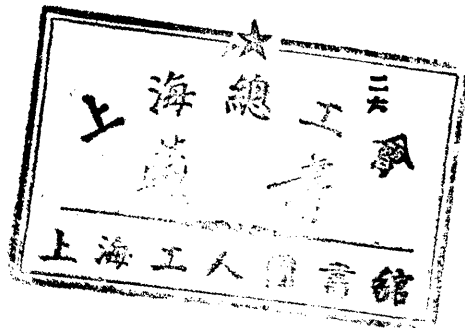 上海總工
藏書
上海工人圖書館